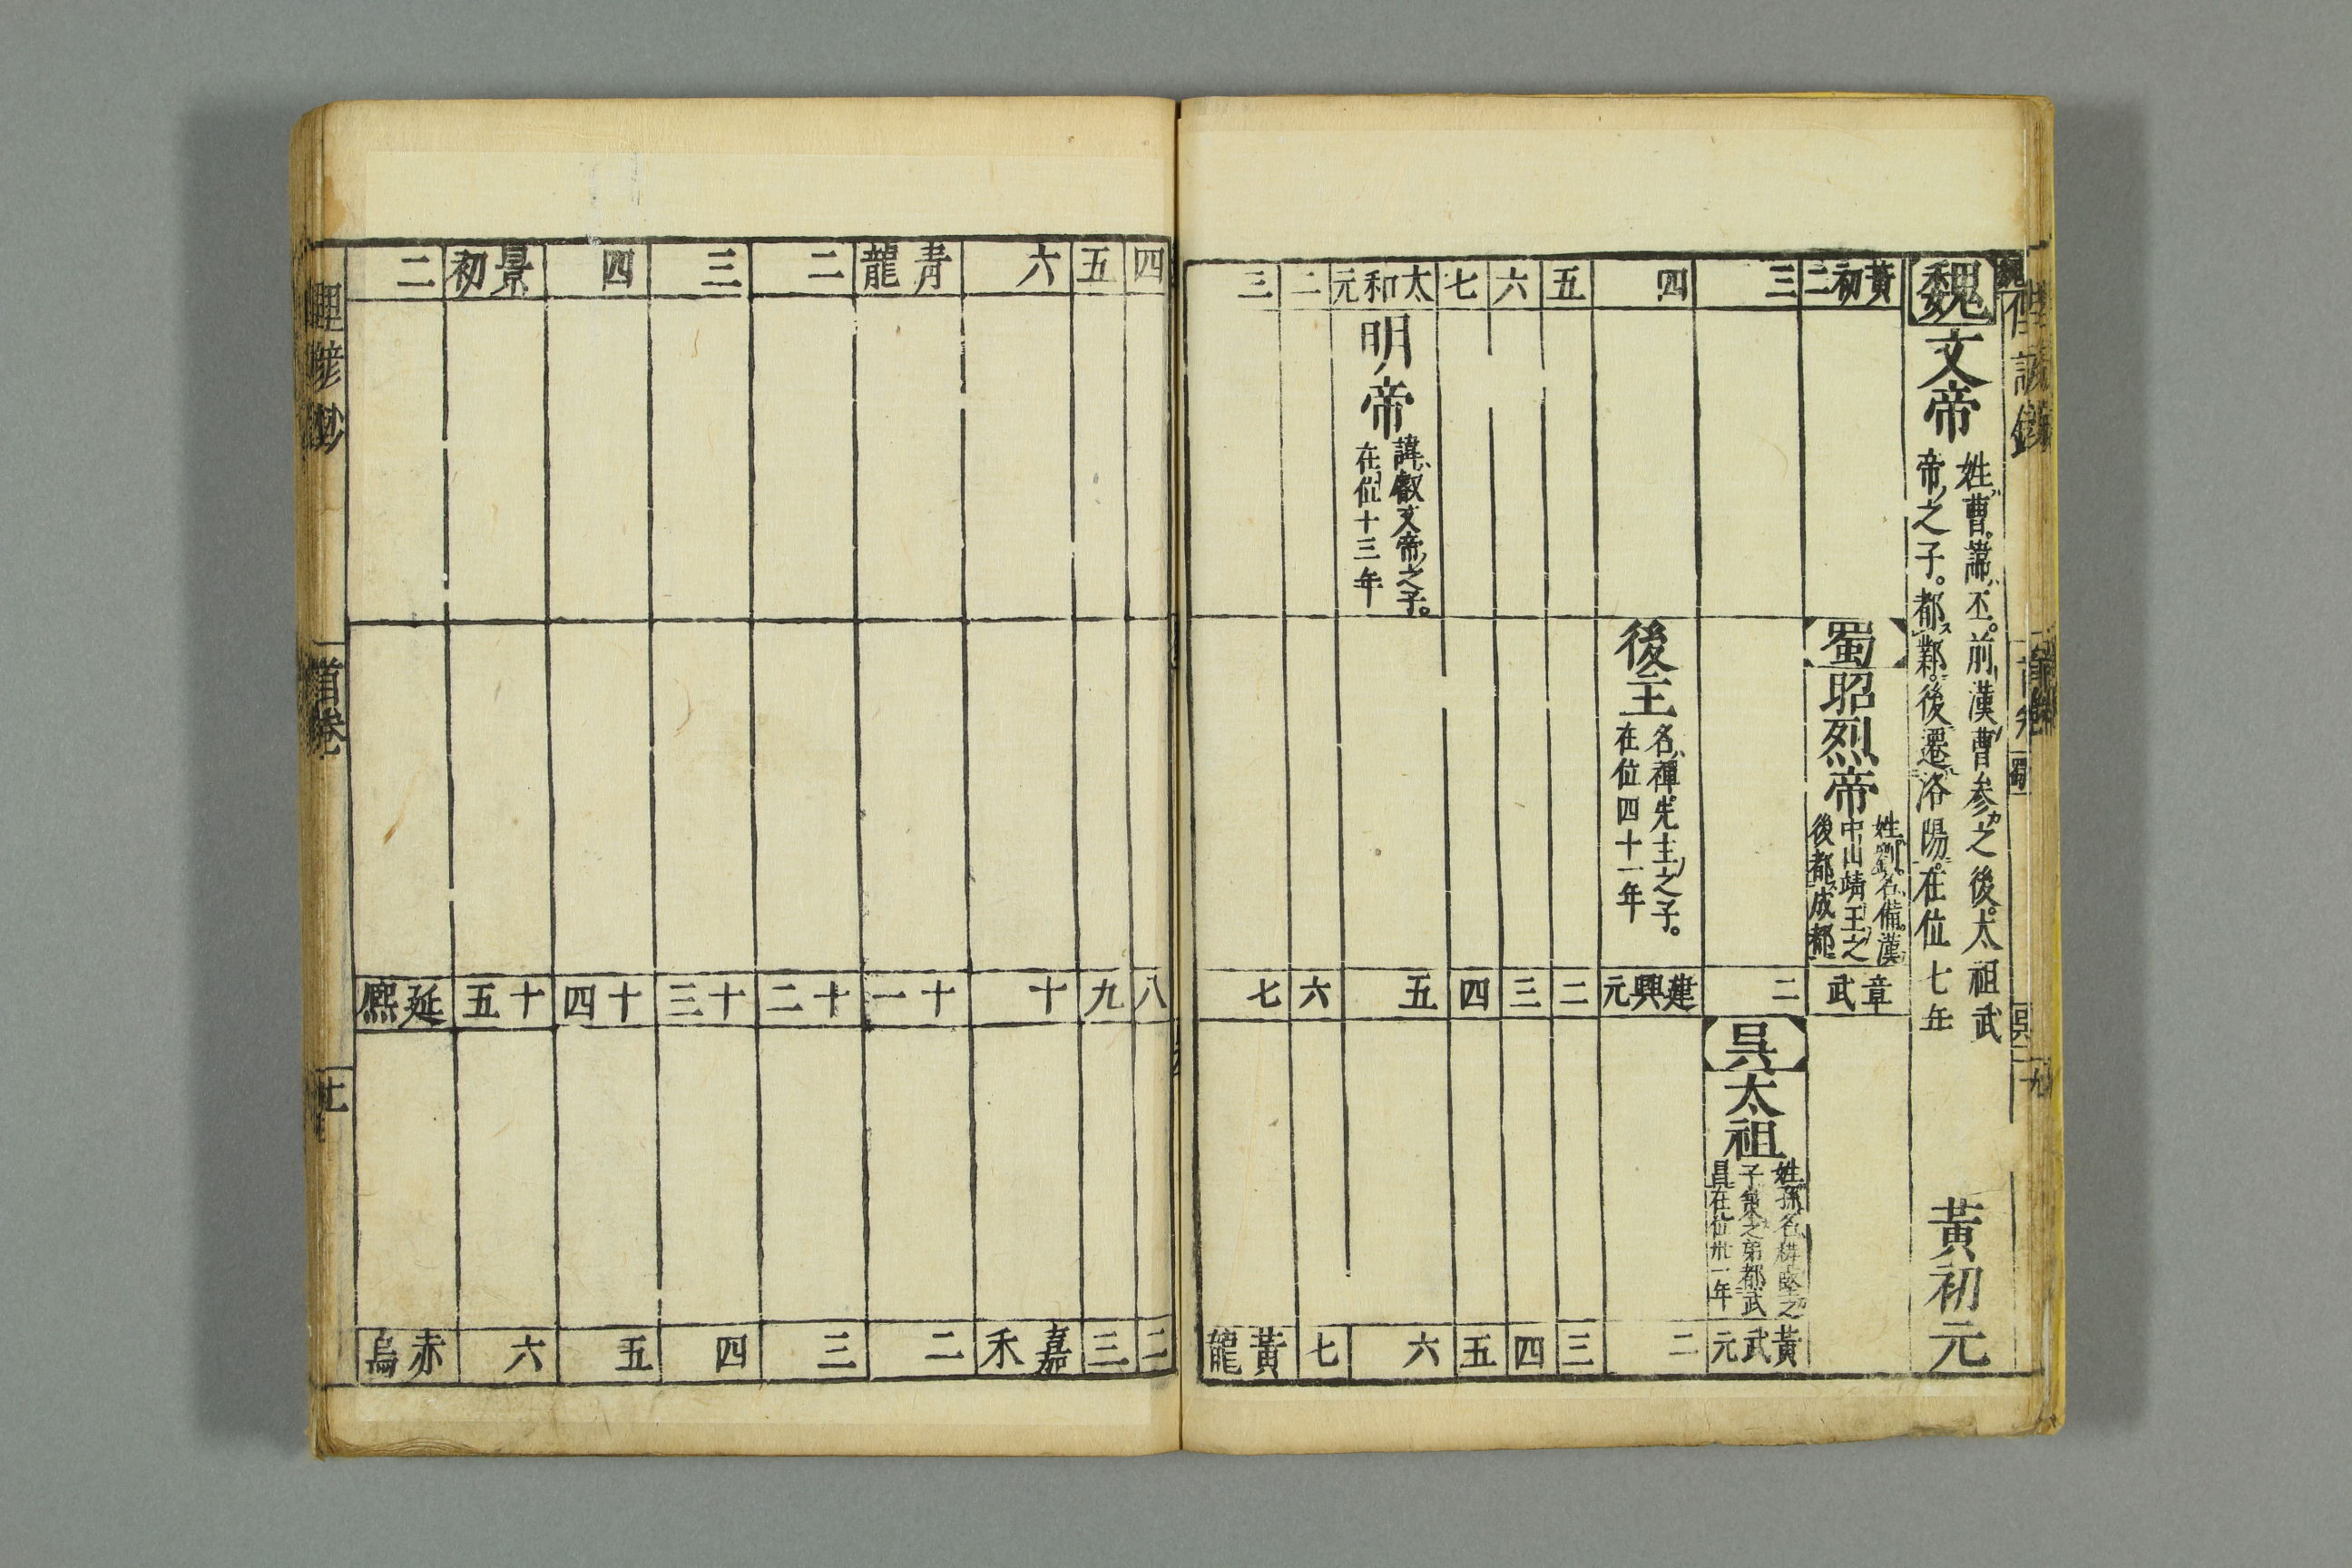 魏文帝
姓曹諱丕。前漢曹参之後。太祖武
帝之子。都鄴。後遷洛陽。在位七年
黃初元
黃初二
蜀昭烈帝
姓劉。名備。漢
中山靖王之
後都成都
章武
三
二
吳太祖
姓孫名権堅之
子策之弟都武
昌在位卅一年
黃武元
四
後主
名禪。先主之子。
在位四十一年
建興元
二
五
二
三
六
三
四
七
四
五
太和元
明帝
諱叡文帝之子。
在位十三年
五
六
二
六
七
三
七
黃龍
四
八
二
五
九
三
六
十
嘉禾
青龍
十一
二
二
十二
三
三
十三
四
四
十四
五
景初
十五
六
二
延熙
赤烏
俚諺鈔
首卷